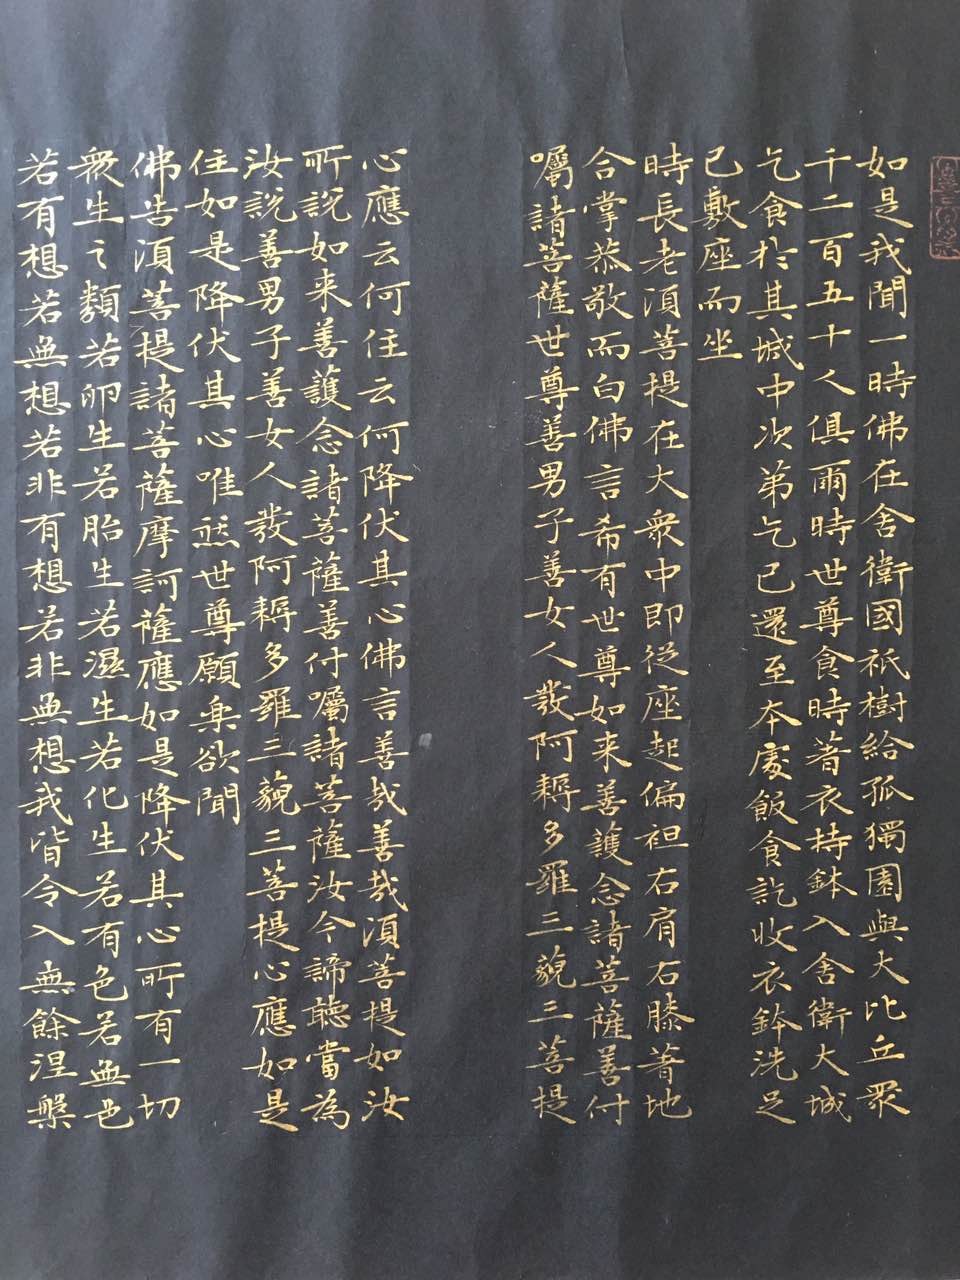 如是我聞一時佛在舍衛國祇樹給孤獨園與大比丘衆
千二百五十人俱爾時世尊食時著衣持鉢入舍衛大城
乞食於其城中次第乞已還至本處飯食訖收衣鉢洗足
已敷座而坐
時長老須菩提在大衆中即從座起偏袒右肩右膝著地
合掌恭敬而白佛言希有世尊如来善護念諸菩薩善付
囑諸菩薩世尊善男子善女人發阿耨多羅三藐三菩提
心應云何住云何降伏其心佛言善哉善哉須菩提如汝
所説如来善護念諸菩薩善付囑諸菩薩汝今諦聽當為
汝説善男子善女人發阿耨多羅三藐三菩提心應如是
住如是降伏其心唯然世尊願樂欲聞
佛告須菩提諸菩薩摩訶薩應如是降伏其心所有一切
衆生之類若卵生若胎生若濕生若化生若有色若無色
若有想若無想若非有想若非無想我皆令入無餘涅槃